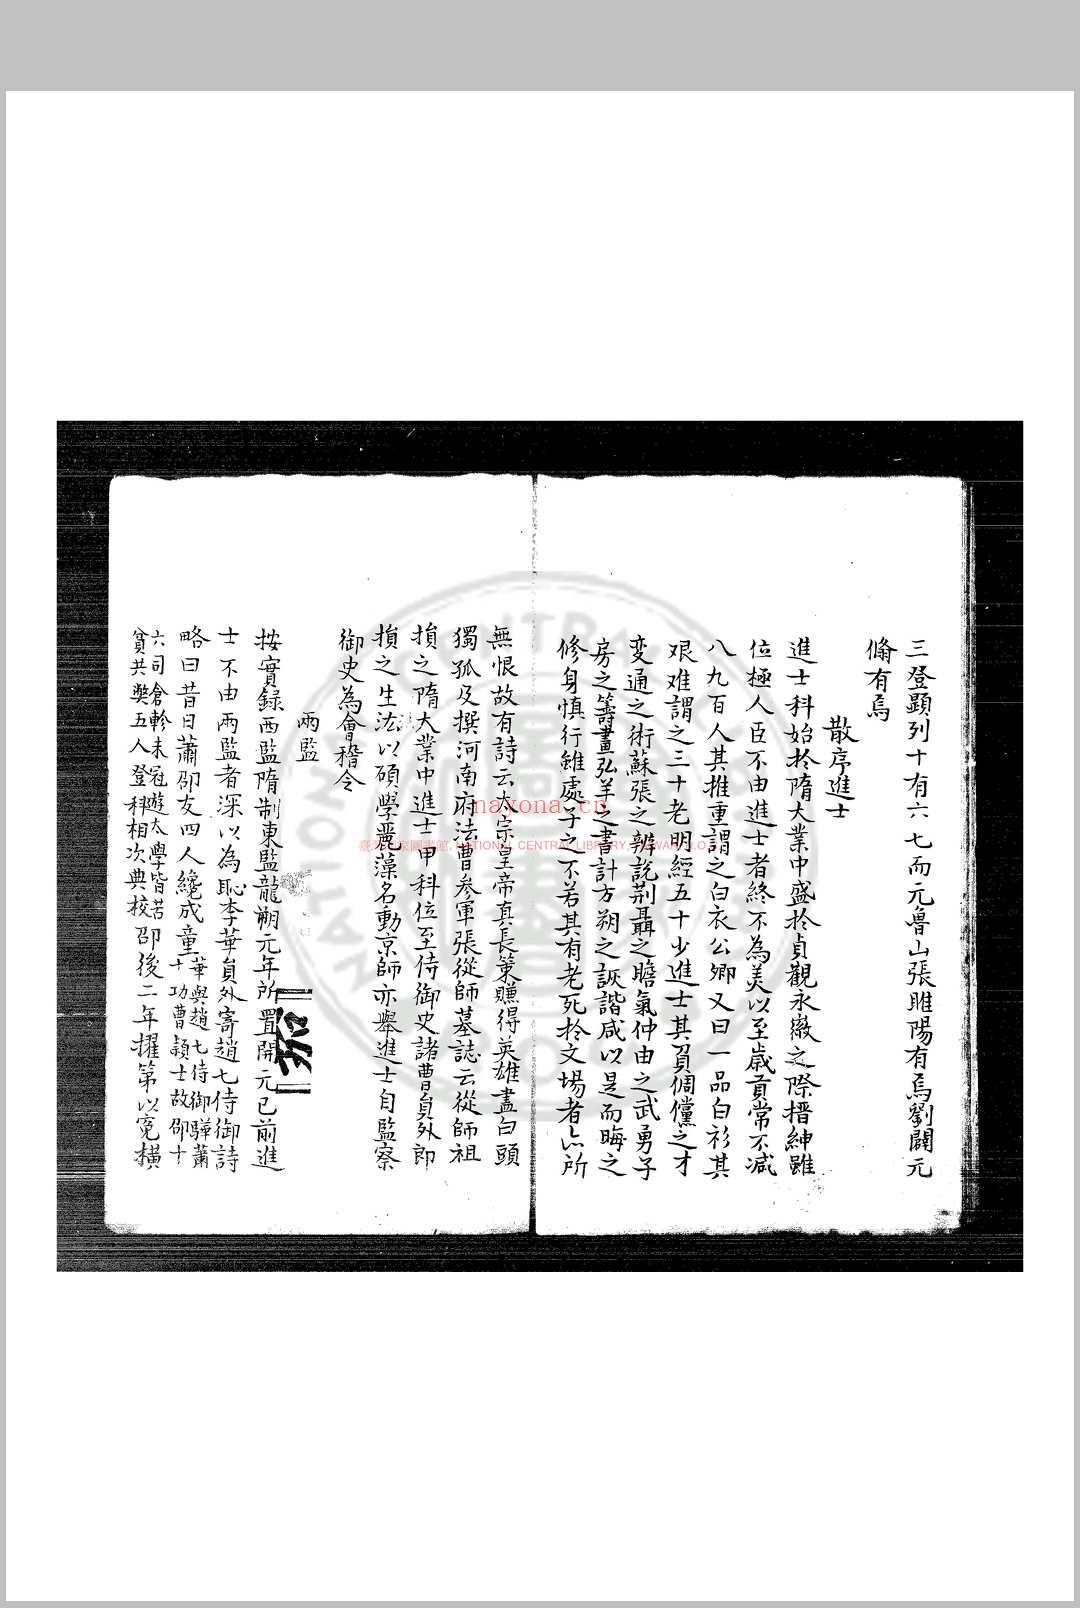 三登顯列十有六七而元魯山張睢陽有焉劉闢元
翛有焉
散序進士
進士科始於隋大業中盛於貞觀永徽之際搢紳雖
位極人臣不由進士者終不為美以至歲貢常不減
八九百人其推重謂之白衣公卿又曰一品白衫其
艰难謂之三十老明經五十少進士其負倜儻之才
变通之術蘇張之辨説荊聶之瞻氣仲由之武勇子
房之籌畫弘羊之書計方朔之詼諧咸以是而晦之
修身慎行雖處子之不若其有老死於文場者亦所
無恨故有詩云太宗皇帝真長策賺得英雄盡白頭
獨孤及撰河南府法曹參軍張從師墓誌云從師祖
損之隋大業中進士甲科位至侍御史諸曹員外郎
損之生法以碩學麗藻名動京師亦舉進士自監察
御史為會稽令
兩監
按實錄西監隋制東監龍朔元年所置開元已前進
士不由兩監者深以為恥李華員外寄趙七侍御詩
略曰昔日蕭邵友四人纔成童華與趙七侍御驊蕭
十功曹穎士故邵十
六司倉軫未冠遊太學皆苦
貧共奬五人登科相次典校邵後二年擢第以冤橫
NATIONAL CENTRAL LIBRARY
naxona.cn
臺灣國家圖書館, NATIONAL CENTRAL LIBRARY, TAIWAN, R.O.C